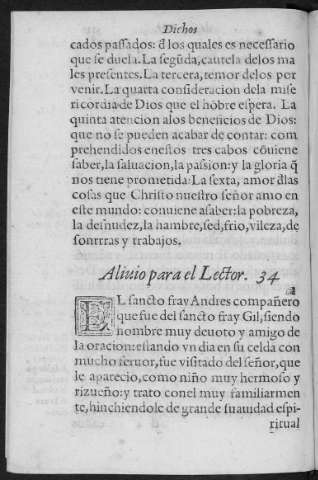 Dichos
cados passados: d̃ los quales es necessario
que se duela. La segũda, cautela delos ma
les presentes. La tercera, temor delos por
venir. La quarta consideracion dela mise
ricordia de Dios que el hõbre espera. La
quinta atencion alos beneficios de Dios:
que no se pueden acabar de contar: com
prehendidos enestos tres cabos cõuiene
saber, la saluacion, la passion: y la gloria q̃
nos tiene prometida: La sexta, amor d̃las
cosas que Christo nuestro señor amo en
este mundo: conuiene asaber: la pobreza,
la desnudez, la hambre, sed, frio, vileza, de
sonrrras y trabajos.
Aliuio para el Lector. 34
EL sancto fray Andres compañero
que fue del sancto fray Gil, siendo
hombre muy deuoto y amigo de
la oracion: estando vn dia en su celda con
mucho feruor, fue visitado del señor, que
le aparecio, como niño muy hermoso y
rizueño: y trato conel muy familiarmen
te, hinchiendole de grande suauidad espi-
ritual